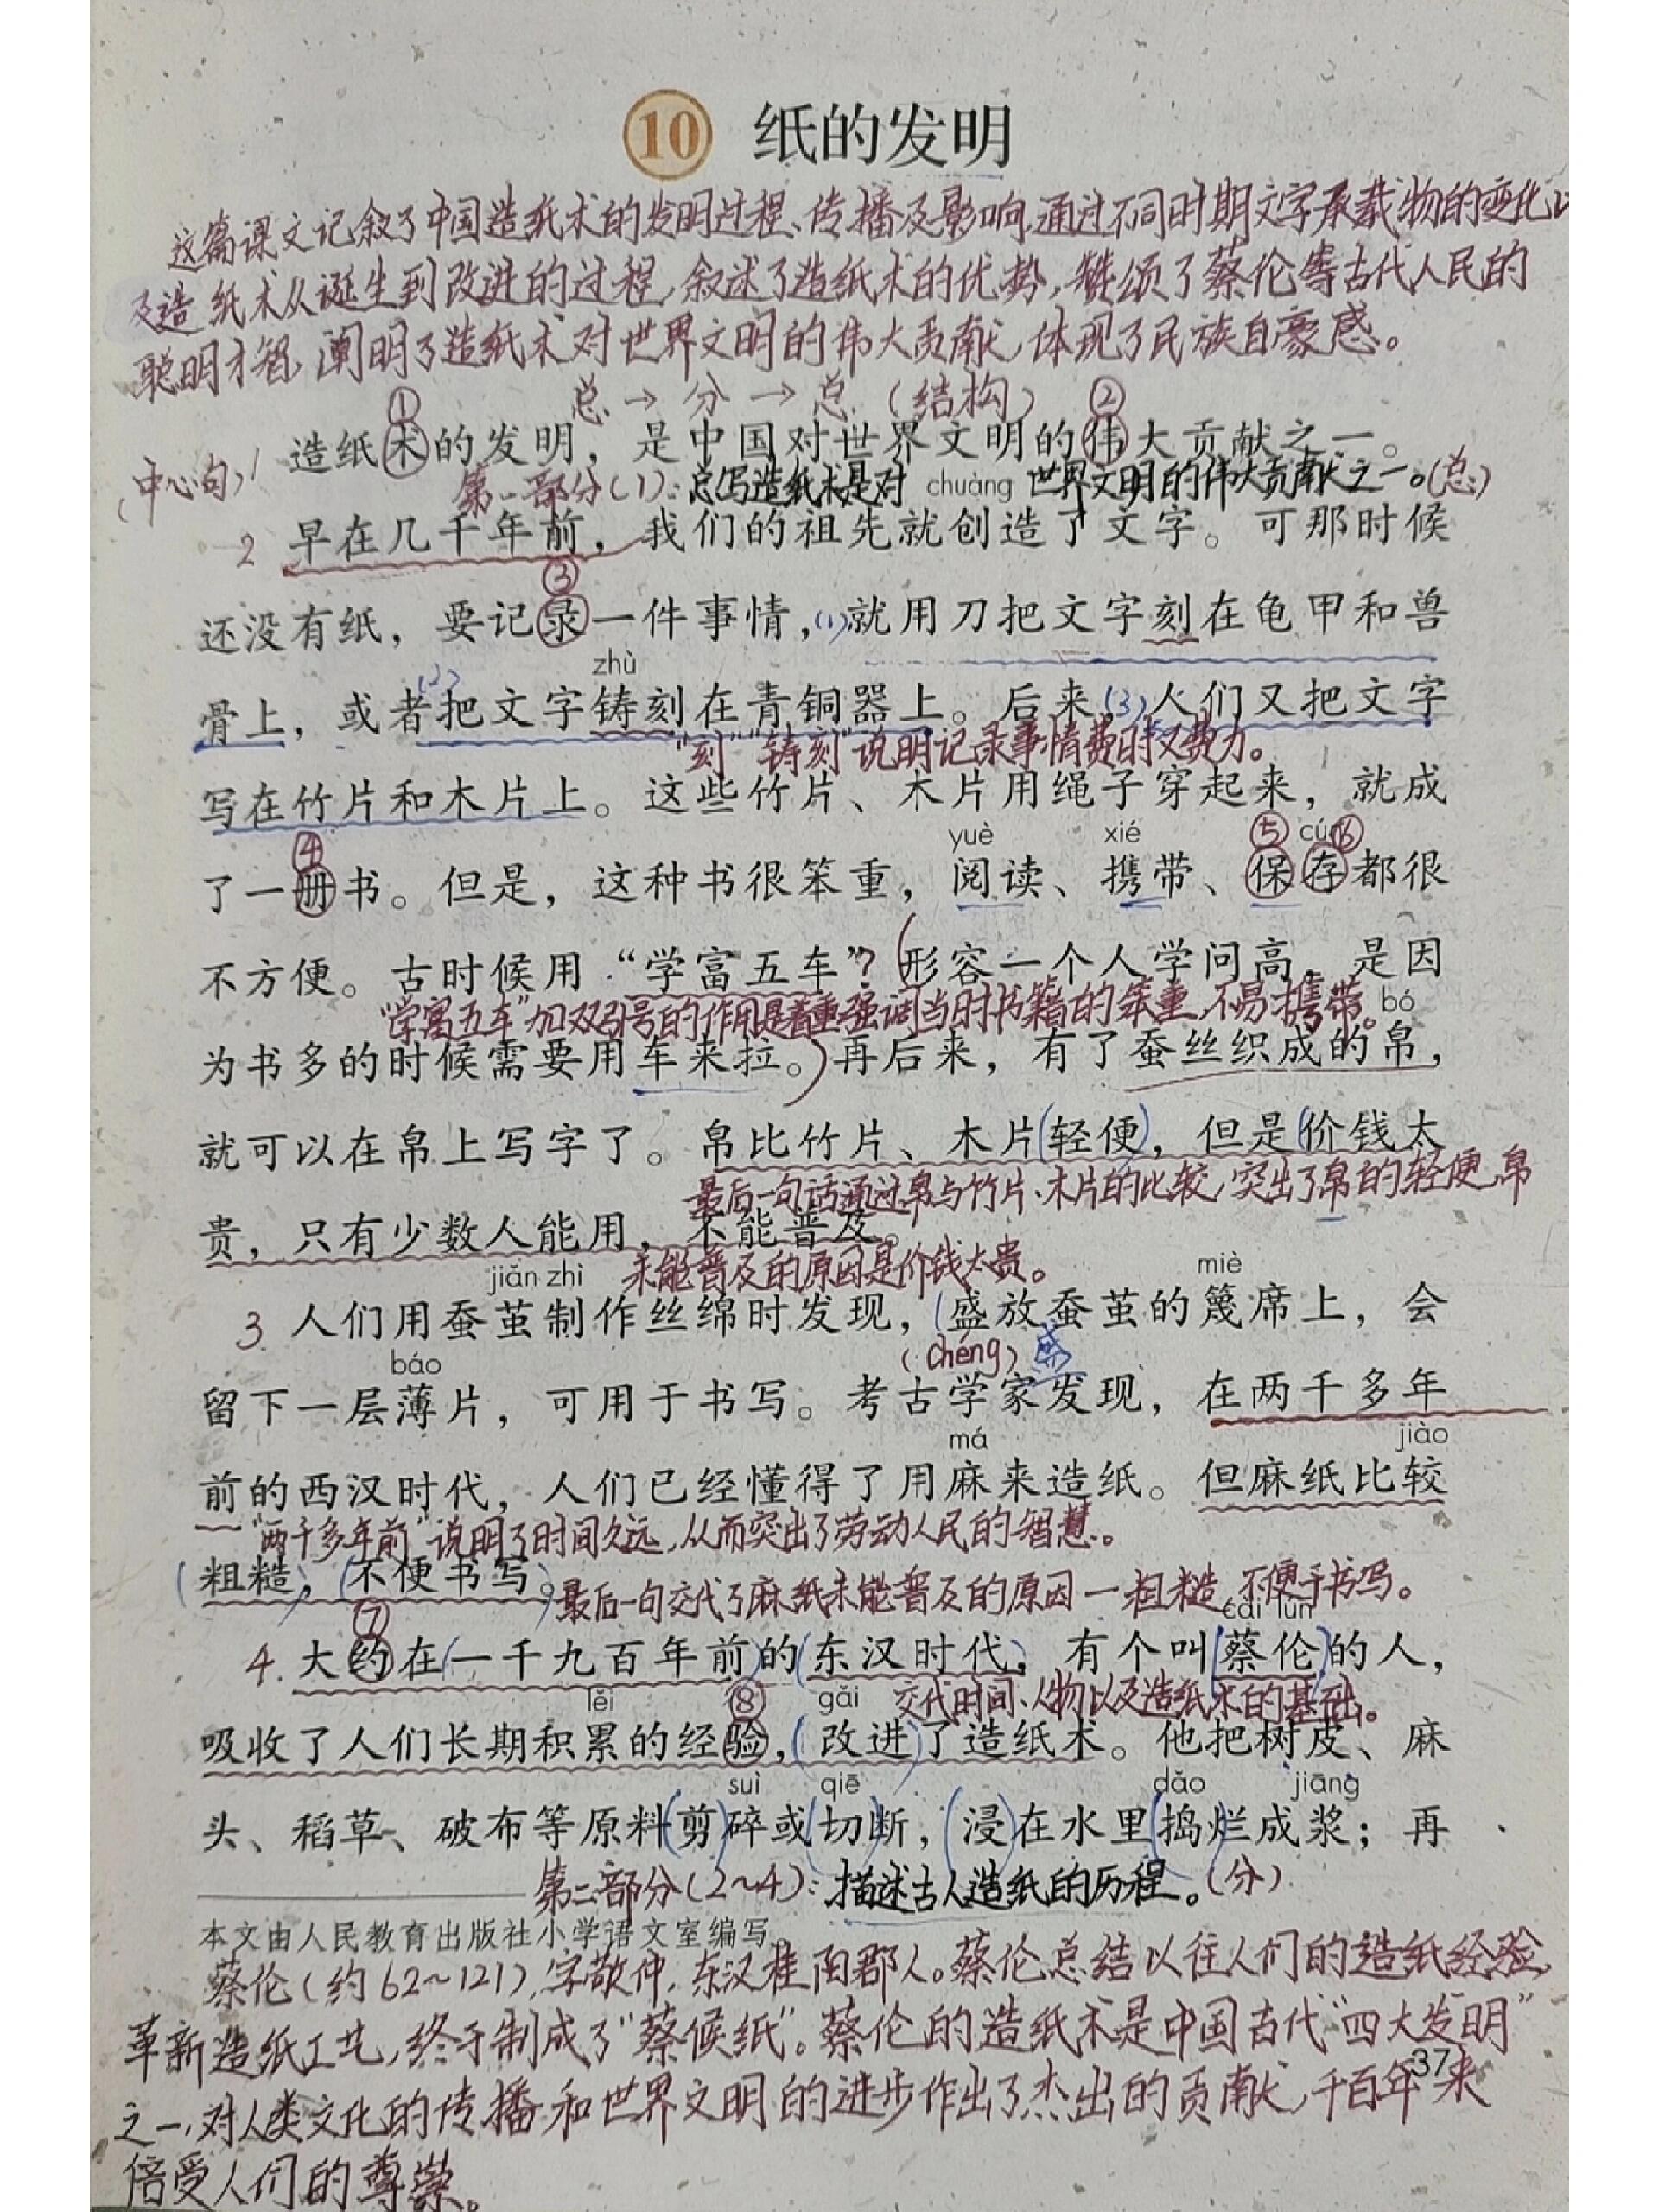 10 纸的发明
这篇课文记叙了中国造纸术的发明过程、传播及影响,通过不同时期文字承载物的变化以
及造纸术从诞生到改进的过程,叙述了造纸术的优势,赞颂了蔡伦等古代人民的
聪明才智,阐明了造纸术对世界文明的伟大贡献,体现了民族自豪感。
总→分→总(结构)
① ②
造纸术的发明,是中国对世界文明的伟大贡献之一。
(中心句)1
第一部分(1):总写造纸术是对世界文明的伟大贡献之一。(总)
chuàng
2 早在几千年前,我们的祖先就创造了文字。可那时候
③
还没有纸,要记录一件事情,(1)就用刀把文字刻在龟甲和兽
zhù
骨上,或者(2)把文字铸刻在青铜器上。后来,(3)人们又把文字
"刻""铸刻"说明记录事情费时又费力。
写在竹片和木片上。这些竹片、木片用绳子穿起来,就成
④ yuè xié ⑤ cún ⑥
了一册书。但是,这种书很笨重,阅读、携带、保存都很
不方便。古时候用“学富五车”?(形容一个人学问高,是因
"学富五车"加双引号的作用是着重强调当时书籍的笨重,不易携带。
bó
为书多的时候需要用车来拉。)再后来,有了蚕丝织成的帛,
就可以在帛上写字了。帛比竹片、木片(轻便),但是(价钱太
最后一句话通过帛与竹片、木片的比较,突出了帛的轻便,帛
贵,只有少数人能用,不能普及。
未能普及的原因是价钱太贵。
jiǎn zhì miè
3 人们用蚕茧制作丝绵时发现,(盛放蚕茧的篾席上,会
(chéng)盛
báo
留下一层薄片,可用于书写。考古学家发现,在两千多年
má jiào
前的西汉时代,人们已经懂得了用麻来造纸。但麻纸比较
"两千多年前"说明了时间久远,从而突出了劳动人民的智慧。
(粗糙),(不便书写)。
最后一句交代了麻纸未能普及的原因—粗糙,不便于书写。
⑦ cài lún
4.大约在(一千九百年前)的(东汉时代),有个叫(蔡伦)的人,
交代时间、人物以及造纸术的基础。
lěi ⑧ gǎi
吸收了人们长期积累的经验,(改进)了造纸术。他把树皮、麻
suì qiē dǎo jiāng
头、稻草、破布等原料(剪)碎或(切)断,(浸)在水里(捣)烂成浆;再
第二部分(2~4):描述古人造纸的历程。(分)
本文由人民教育出版社小学语文室编写。
蔡伦(约62~121),字敬仲,东汉桂阳郡人。蔡伦总结以往人们的造纸经验,
革新造纸工艺,终于制成了"蔡候纸"。蔡伦的造纸术是中国古代"四大发明"
37
之一,对人类文化的传播和世界文明的进步作出了杰出的贡献,千百年来
倍受人们的尊崇。